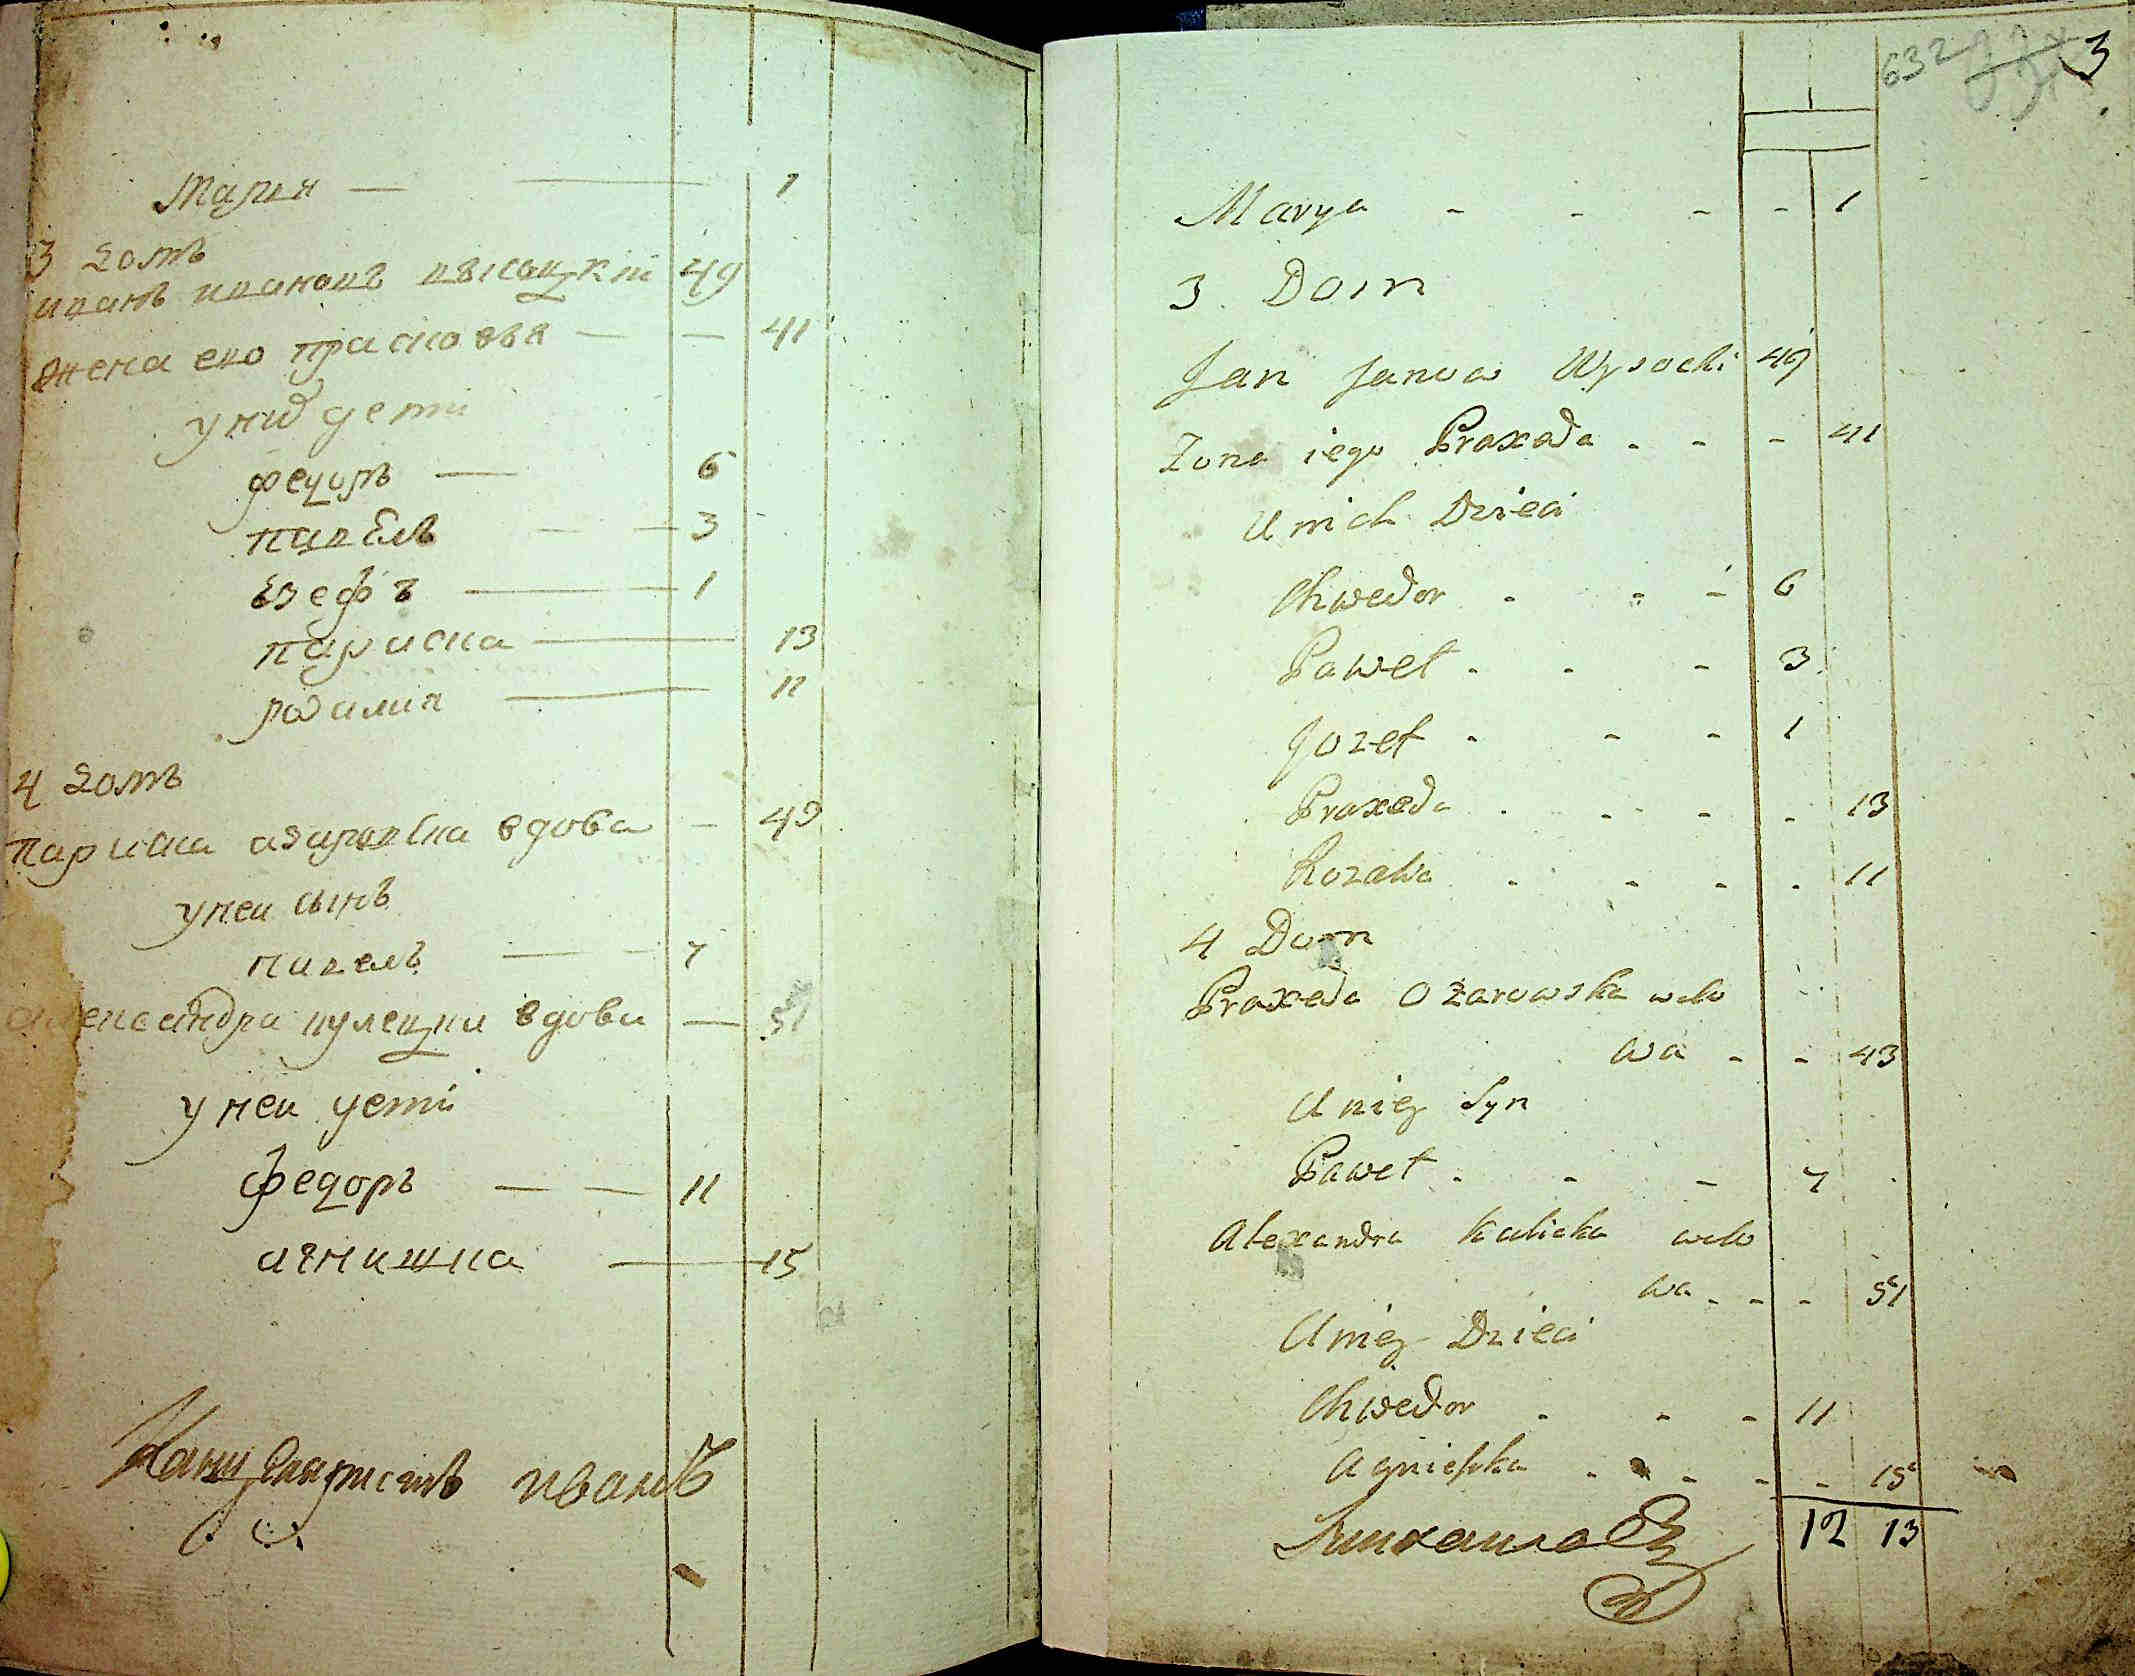 Мария — — 1
3 домъ
иванъ ивановъ высоцкіи 49
жена ево прасковья — — 41
у них дети
федоръ — 6
павелъ — — 3
езефъ — 1
париска — 13
розалия — 11
4 домъ
париска азаровска вдова — 49
у неи сынъ
павелъ — — 7
александра кулецка вдова — 51
у неи дети
федоръ — — 11
агнишка — 15
Канцеляристъ Иванъ
632
3
Marya - - - - 1
3 Dom
Jan Janow Wysocki 49
Zona iego Praxeda - - - 41
U nich Dzieci
Chwedor - - - 6
Paweł - - - 3
Jozef - - - 1
Praxeda - - - - 13
Rozalia - - - - 11
4 Dom
Praxeda Ozarowska wdo
wa - - 43
U niey Syn
Paweł - - - 7
Alexandra Kulicka wdo
wa - - - 51
U niey Dzieci
Chwedor - - - 11
Agnieszka - - - - 15
12 13